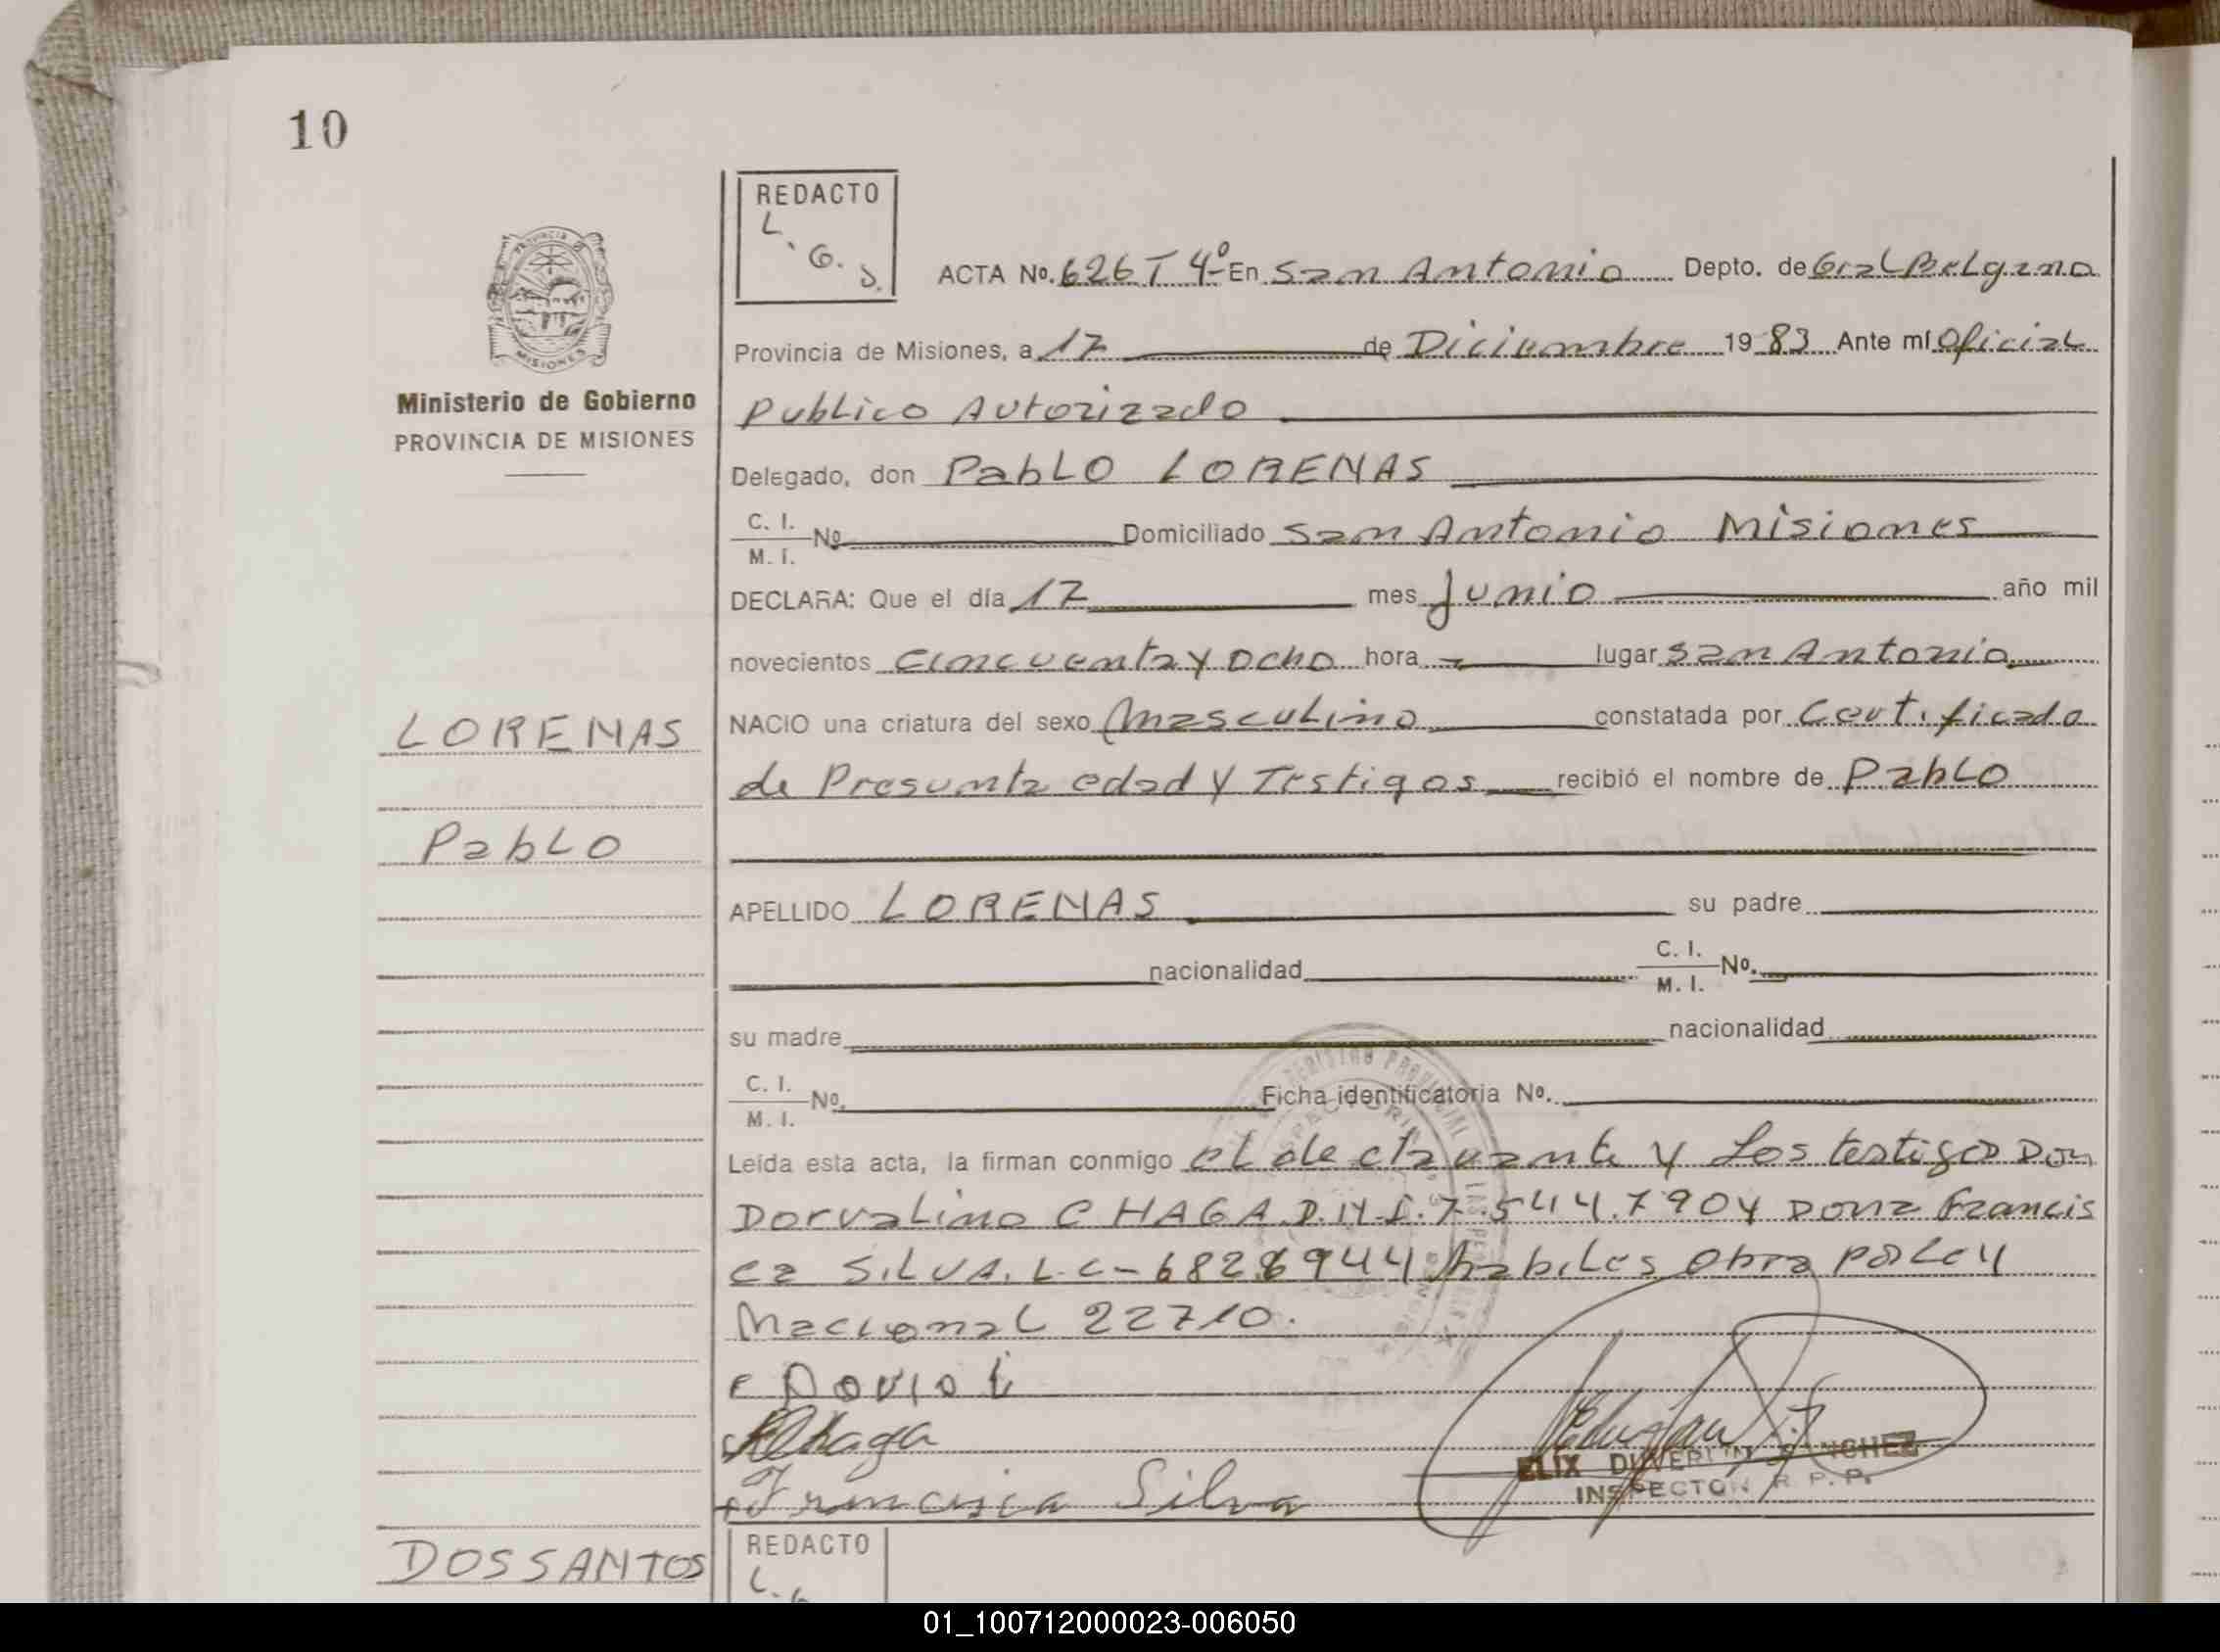 10
REDACTO
L. G. S.
ACTA Nº. 626 T 4º En San Antonio Depto. de Gral Belgrano
Provincia de Misiones, a 17 de Diciembre 1983 Ante mí Oficial
Publico Autorizado
Ministerio de Gobierno
PROVINCIA DE MISIONES
Delegado, don Pablo LORENAS
C. I.
M. I. Nº Domiciliado San Antonio Misiones
DECLARA: Que el día 17 mes Junio año mil
novecientos Cincuenta y Ocho hora lugar San Antonio
NACIO una criatura del sexo Masculino constatada por Certificado
de Presunta edad y Testigos recibió el nombre de Pablo
LORENAS
Pablo
APELLIDO LORENAS su padre
nacionalidad C. I.
M. I. Nº.
su madre nacionalidad
C. I.
M. I. Nº. Ficha identificatoria Nº.
Leída esta acta, la firman conmigo el declarante y Los testigos Don
Dorvalino CHAGA D.N.I. 7.544.790 y Dona Francis
ca SILVA. L.C-6828944 habiles Obra por Ley
Nacional 22710.
Chaga
Francisca Silva
SANCHEZ
INSPECTOR R. P. P.
DOSSANTOS
REDACTO
L.
01_100712000023-006050